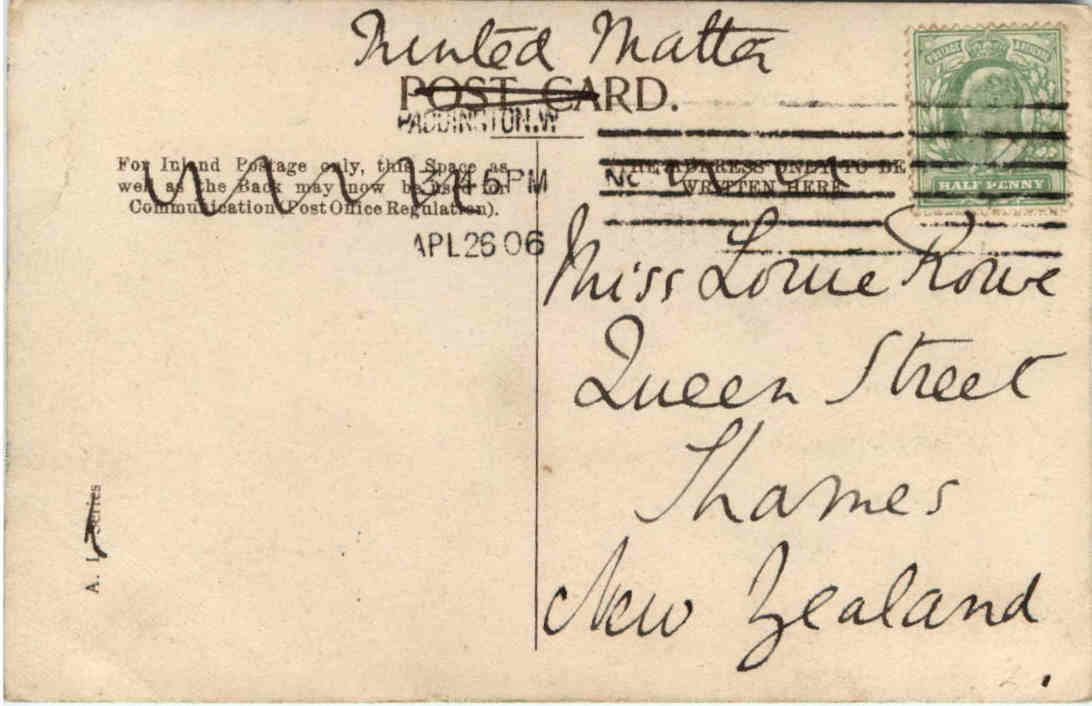 Printed Matter
POST CARD.
PADDINGTON.W
For Inland Postage only, this Space as
well as the Back may now be used for
Communication (Post Office Regulation).
45 PM
APL 26 06
THE ADDRESS ONLY TO BE
WRITTEN HERE
HALF PENNY
Miss Lorrie Rowe
Queen Street
Thames
New Zealand
Series